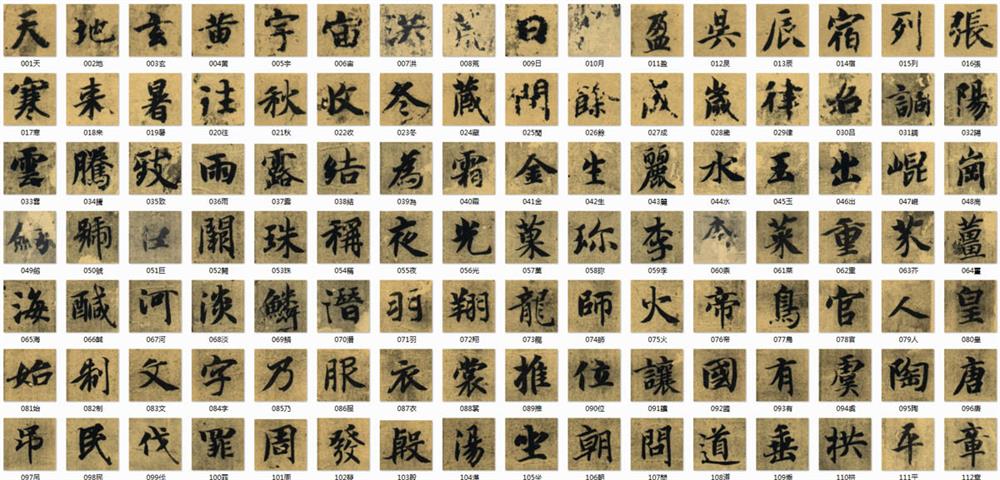 天 地 玄 黄 宇 宙 洪 荒 日 盈 昃 辰 宿 列 張
001天 002地 003玄 004黄 005宇 006宙 007洪 008荒 009日 010月 011盈 012昃 013辰 014宿 015列 016張
寒 来 暑 往 秋 收 冬 藏 閏 餘 成 歲 律 呂 調 陽
017寒 018來 019暑 020往 021秋 022收 023冬 024藏 025閏 026餘 027成 028歲 029律 030呂 031調 032陽
雲 騰 致 雨 露 結 為 霜 金 生 麗 水 玉 出 崐 崗
033雲 034騰 035致 036雨 037露 038結 039為 040霜 041金 042生 043麗 044水 045玉 046出 047崐 048崗
劍 號 巨 闕 珠 稱 夜 光 菓 珎 李 柰 菜 重 芥 薑
049劍 050號 051巨 052闕 053珠 054稱 055夜 056光 057菓 058珎 059李 060柰 061菜 062重 063芥 064薑
海 鹹 河 淡 鱗 潛 羽 翔 龍 師 火 帝 鳥 官 人 皇
065海 066鹹 067河 068淡 069鱗 070潛 071羽 072翔 073龍 074師 075火 076帝 077鳥 078官 079人 080皇
始 制 文 字 乃 服 衣 裳 推 位 讓 國 有 虞 陶 唐
081始 082制 083文 084字 085乃 086服 087衣 088裳 089推 090位 091讓 092國 093有 094虞 095陶 096唐
弔 民 伐 罪 周 發 殷 湯 坐 朝 問 道 垂 拱 平 章
097弔 098民 099伐 100罪 101周 102發 103殷 104湯 105坐 106朝 107問 108道 109垂 110拱 111平 112章